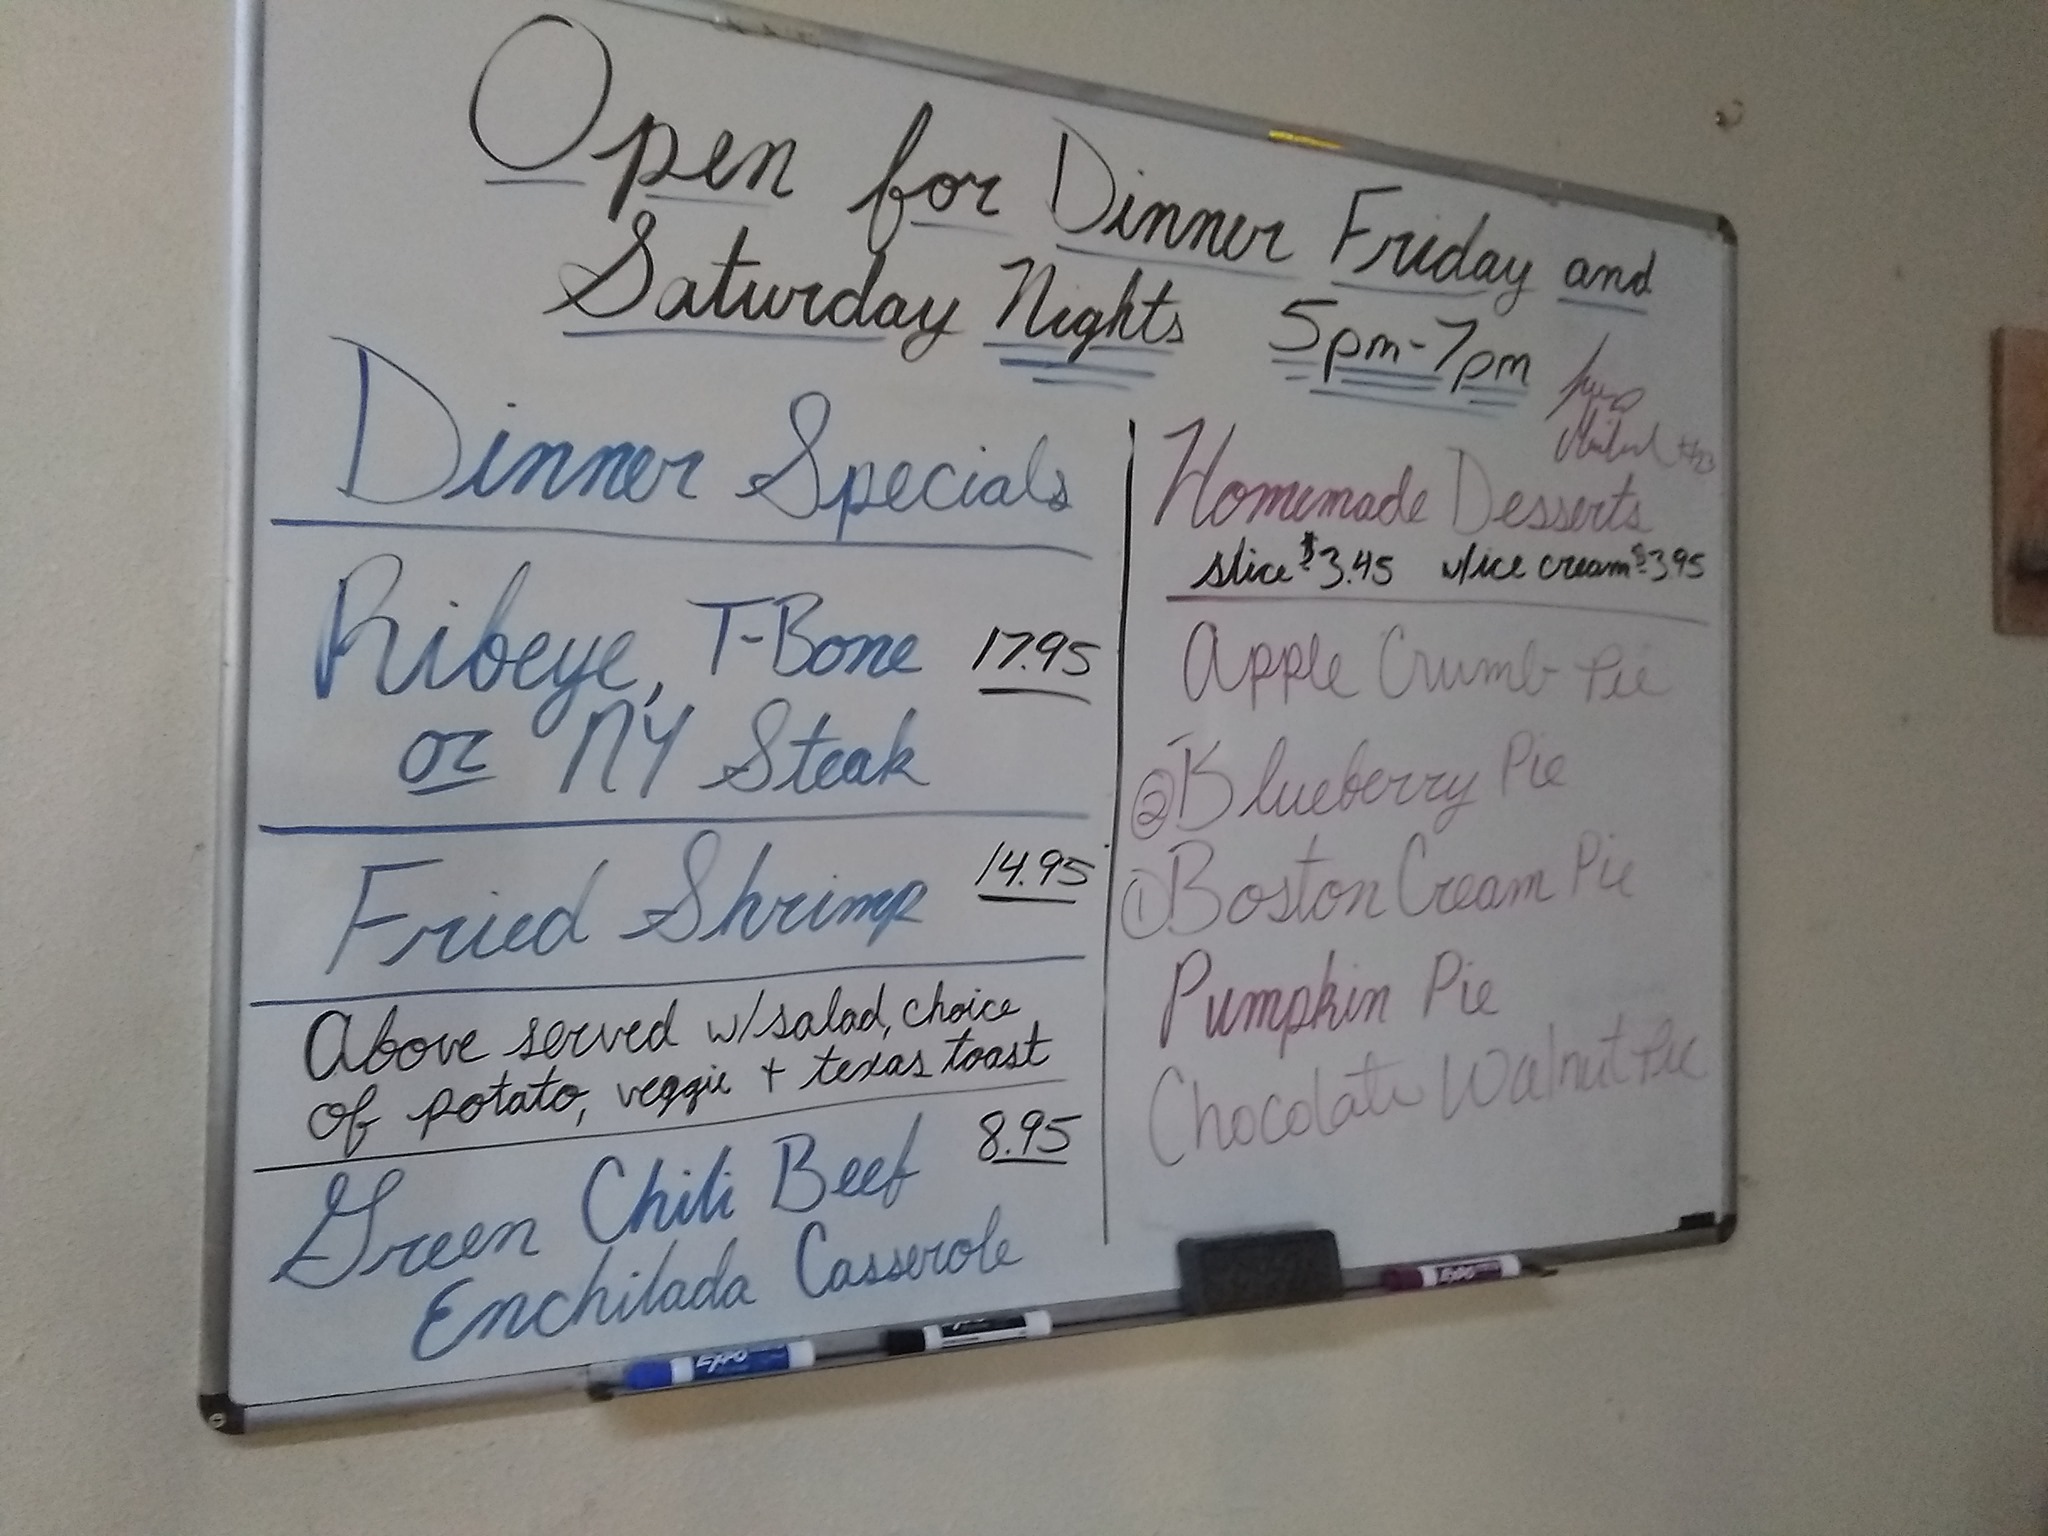 Open for Dinner Friday and
Saturday Nights 5pm-7pm
Dinner Specials
Ribeye, T-Bone 17.95
or NY Steak
Fried Shrimp 14.95
Above served w/salad, choice
of potato, veggie + texas toast
Green Chili Beef 8.95
Enchilada Casserole
Homemade Desserts
slice $3.45 w/ice cream $3.95
Apple Crumb Pie
② Blueberry Pie
① Boston Cream Pie
Pumpkin Pie
Chocolate Walnut Pie
EXPO
EXPO